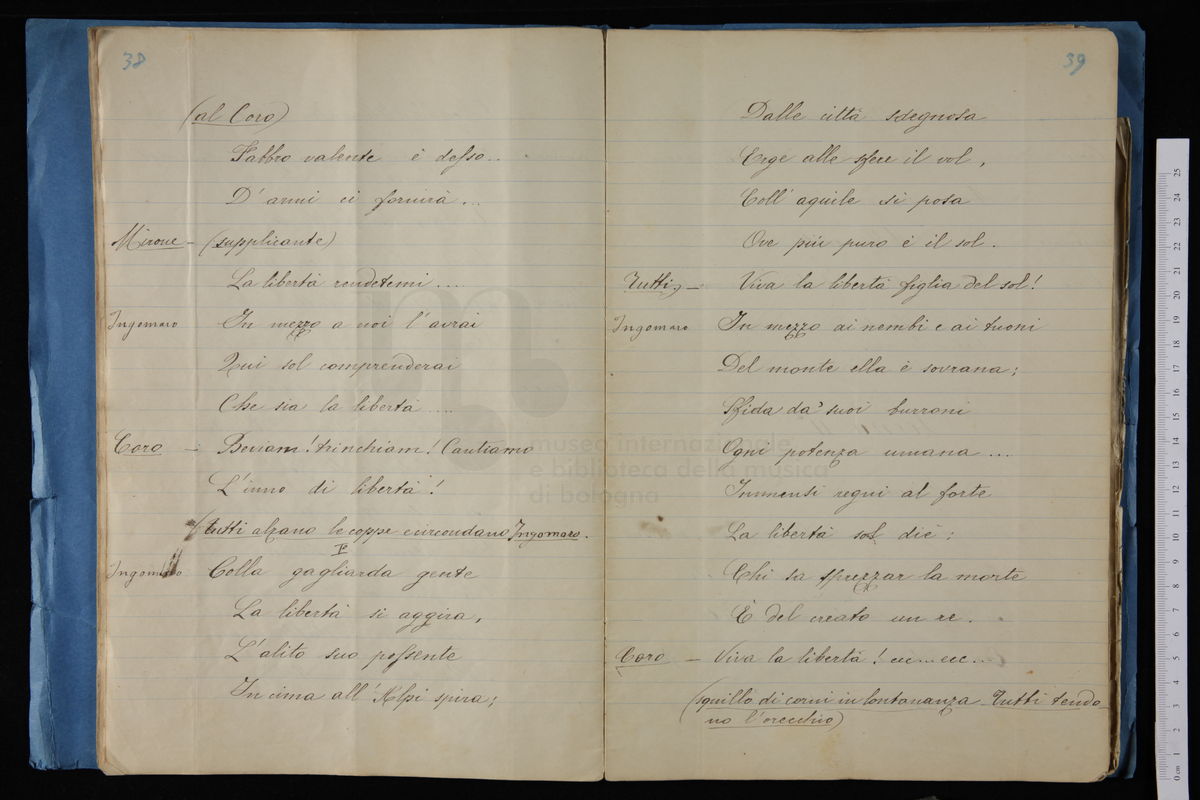 38
(al Coro)
Fabbro valente è desso...
D'armi ci fornirà...
Mirone - (supplicante)
La libertà rendetemi....
Ingomaro In mezzo a noi l'avrai
Qui sol comprenderai
Che sia la libertà....
Coro - Beviam! trinchiam! Cantiamo
L'inno di libertà!
(tutti alzano le coppe e circondano Ingomaro.
Iº
Ingomaro Colla gagliarda gente
La libertà si aggira,
L'alito suo possente
In cima all'Alpi spira;
39
Dalle città sdegnosa
Erge alle sfere il vol,
Coll'aquile si posa
Ove più puro è il sol.
Tutti, - Viva la libertà figlia del sol!
Ingomaro In mezzo ai nembi e ai tuoni
Del monte ella è sovrana;
Sfida da' suoi burroni
Ogni potenza umana...
Immensi regni al forte
La libertà sol diè;
Chi sa sprezzar la morte
È del creato un re.
Coro - Viva la libertà! ecc... ecc...
(squillo di corni in lontananza - Tutti tendo
no l'orecchio)
museo internazionale
e biblioteca della musica
di bologna
0 cm 1 2 3 4 5 6 7 8 9 10 11 12 13 14 15 16 17 18 19 20 21 22 23 24 25